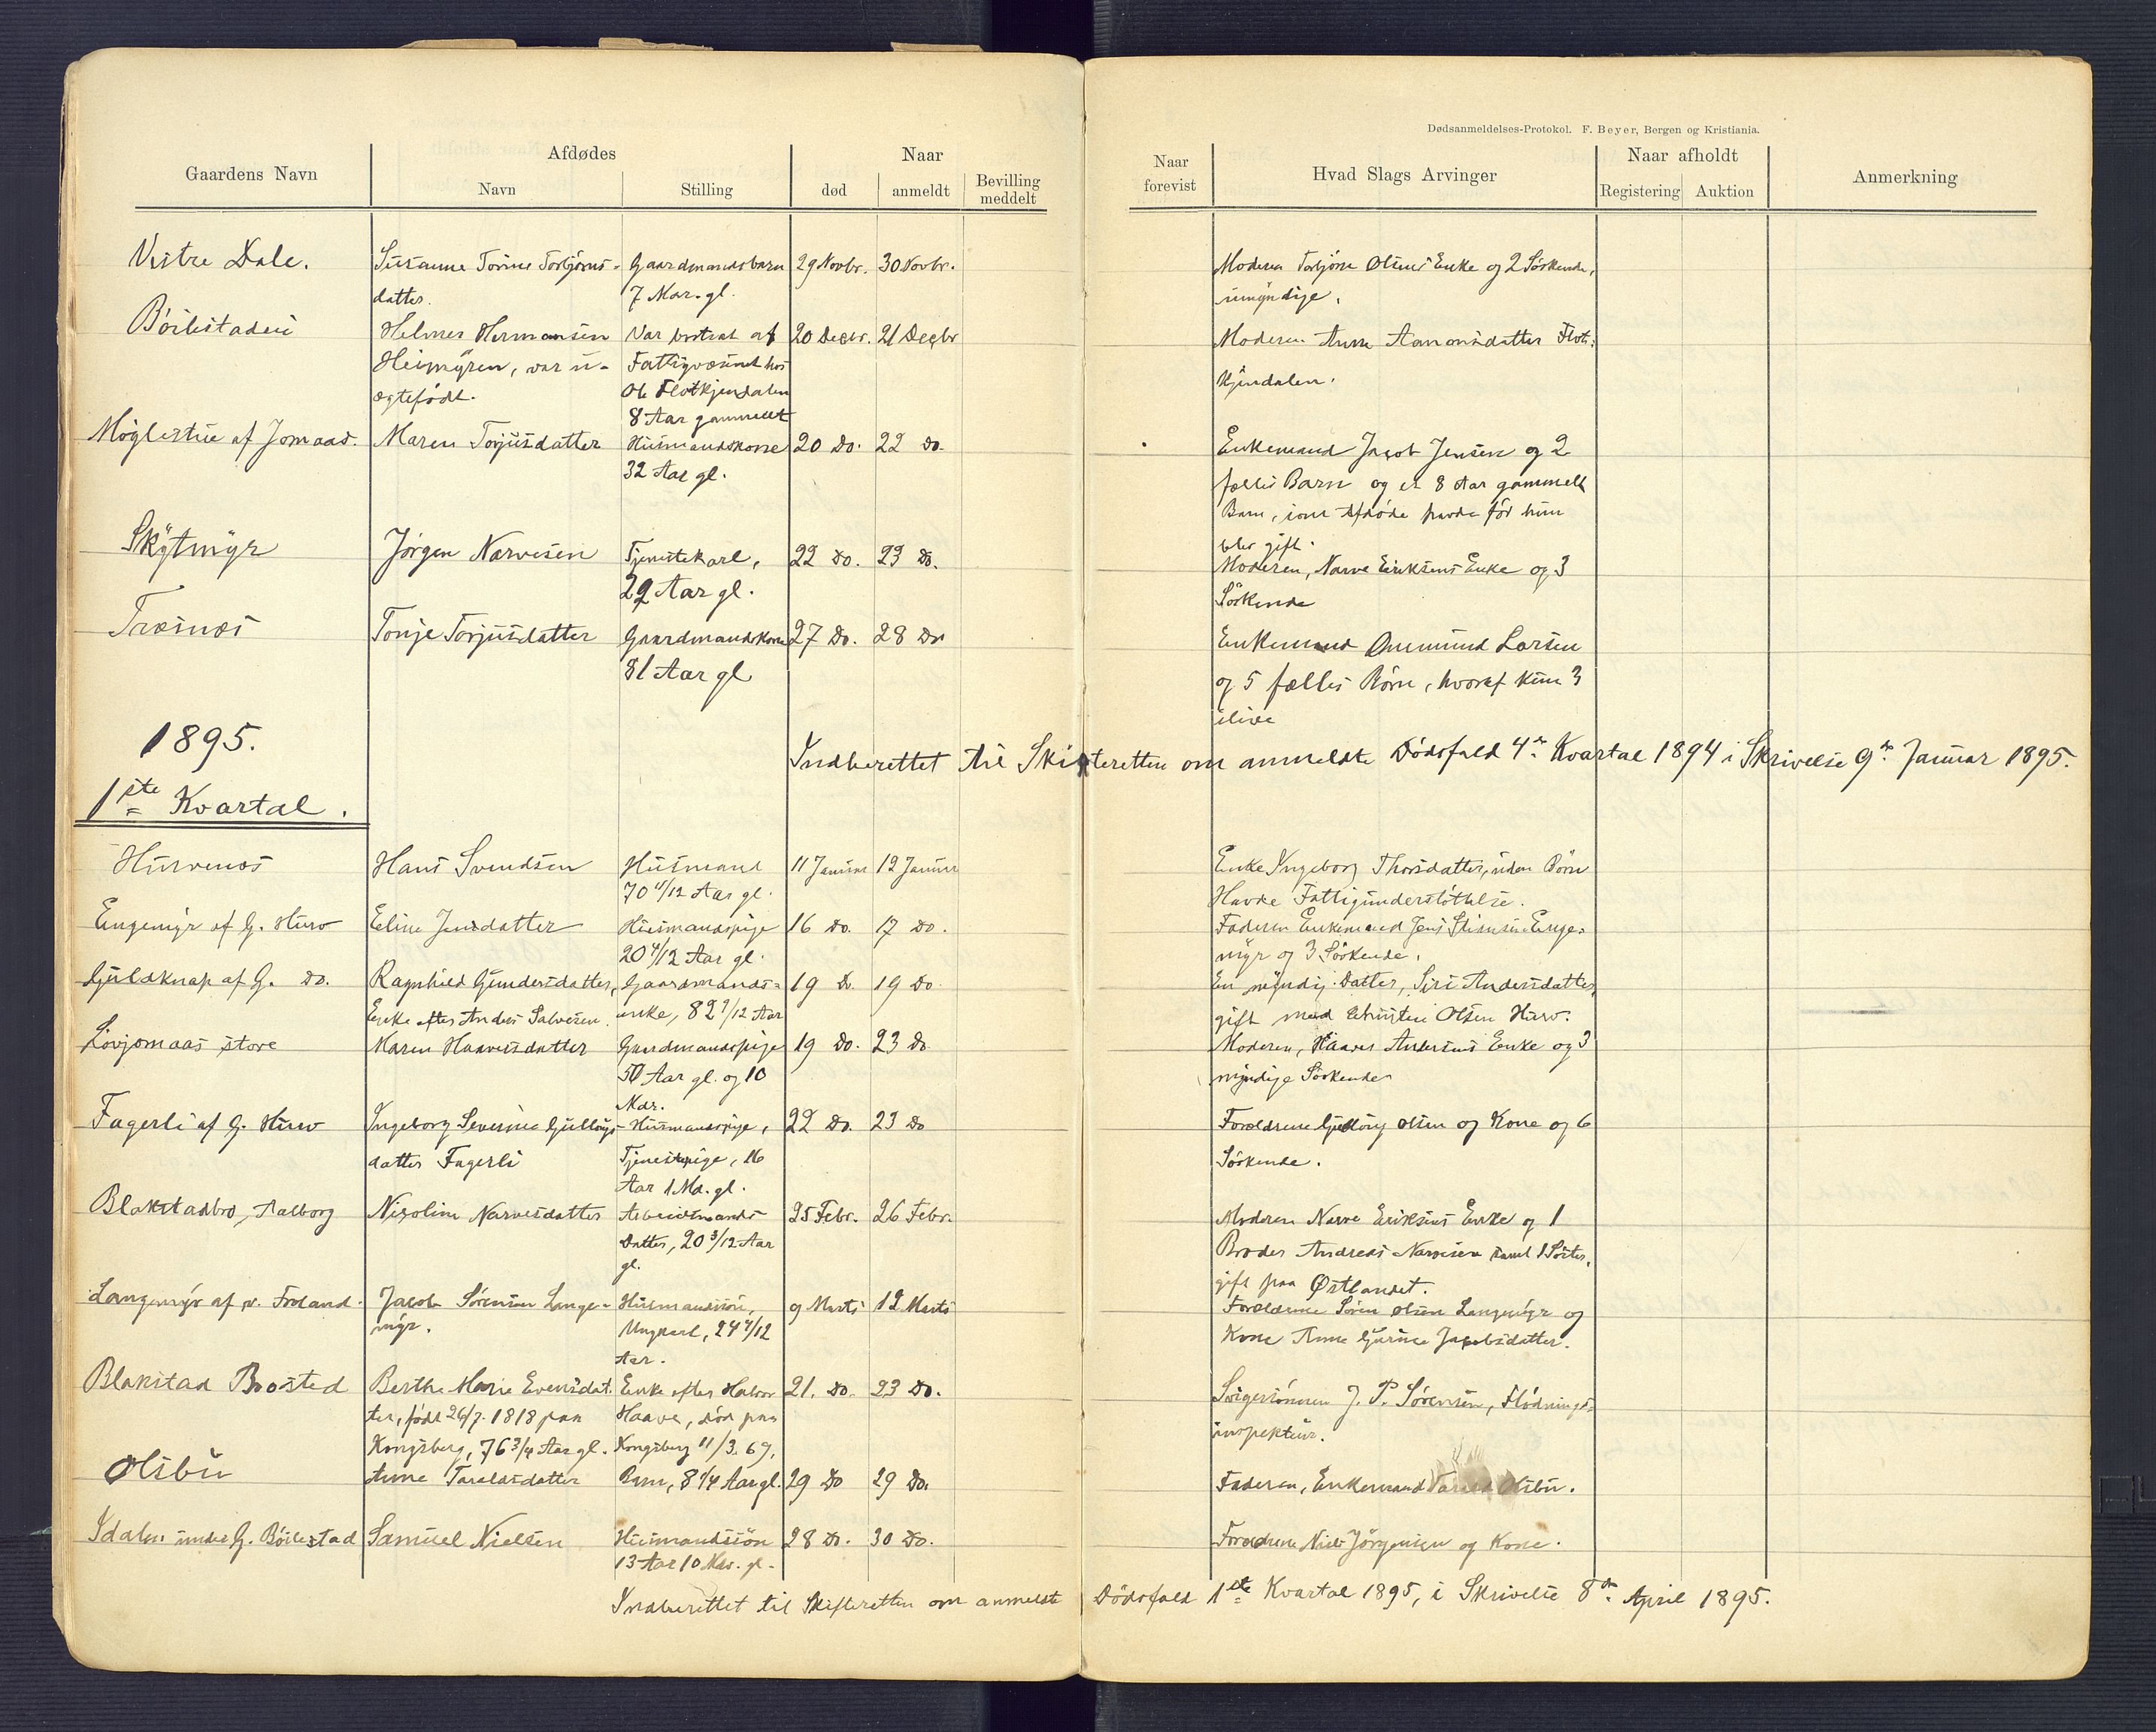 Dødsanmeldelses-Protokol. F. Beyer, Bergen og Kristiania.
Gaardens Navn
Afdødes
Navn
Stilling
Naar
død
anmeldt
Bevilling
meddelt
Naar
forevist
Hvad Slags Arvinger
Naar afholdt
Registering
Auktion
Anmerkning
Vestre Dale.
Susanne Torine Torbjørns-
datter.
Gaardmandsbarn
7 Mar. gl.
29 Novbr.
30 Novbr.
Moderen Torbjørn Olsens Enke og 2 Söskende,
umÿndige.
Böilestadeie
Helmer Hermansen
Heimÿren, var u-
ægtefödt.
Var bortsat af
Fattigvæsenet hos
Ole Flotkjendalen
8 Aar gammelt
20 Decbr.
21 Decbr
Moderen Anne Aanonsdatter Flot-
kjendalen.
Möglestue af Jomaas.
Maren Torjusdatter
Husmandskone
32 Aar gl.
20 Do.
22 Do.
Enkemand Jacob Jensen og 2
fælles Barn og et 8 Aar gammelt
Barn, som Afdöde havde för hun
blev gift.
Skÿtmÿr
Jörgen Narvesen
Tjenestekarl,
22 Aar gl.
22 Do.
23 Do.
Moderen, Narve Eriksens Enke og 3
Söskende
Træsnæs
Tonje Torjusdatter
Gaardmandskone
81 Aar gl
27 Do.
28 Do
Enkemand Ommund Larsen
og 5 fælles Børn, hvoraf kun 3
ilive
1895.
Indberettet til Skifteretten om anmeldte Dödsfald 4de Kvartal 1894 i Skrivelse 9de Januar 1895.
1ste Kvartal.
Hurvenes
Hans Svendsen
Husmand
70 11/12 Aar gl.
11 Januar
12 Januar
Enke Ingeborg Thorsdatter, uden Börn
Havde Fattigunderstöttelse.
Engemÿr af G. Hurv
Eline Jensdatter
Husmandspige
20 4/12 Aar gl.
16 Do.
17 Do.
Faderen Enkemand Jens Enge-
mÿr og 3 Söskende.
Guldknap af G. Do.
Ragnhild Gundersdatter,
Enke efter Anders Salvesen.
Gaardmands-
enke, 82 7/12 Aar
19 D.
19 Do
En mÿndig Datter, Siri Andersdatter
gift med Christen Olsen Hurv.
Lövjomaas store
Maren Haaversdatter
Gaardmandspige
50 Aar gl. og 10
Mdr.
19 Do.
23 Do
Moderen, Haaver Andersens Enke og 3
mÿndige Söskende
Fagerli af G. Hurv
Ingeborg Severine Gullougs-
datter Fagerli
Husmandspige,
Tjenestepige, 16
Aar 1 Md. gl.
22 Do.
23 Do
Forældrene Gulloug Olsen og Kone og 6
Söskende.
Blakstadbro, Aalborg
Nicoline Narvesdatter
Arbeidsmands
Datter, 20 3/12 Aar
gl.
25 Febr.
26 Febr.
Moderen Narve Eriksens Enke og 1
Broder Andreas Narvesen samt 1 Söster,
gift paa Østlandet.
Langemÿr af n. Froland.
Jacob Sörensen Lange-
mÿr.
Husmandssön,
Ungkarl, 24 7/12
Aar.
9 Marts
12 Marts
Forældrene Sören Olsen Langemÿr og
Kone Anne Gurine Jacobsdatter.
Blakstad Brosted
Berthe Marie Evensdat-
ter, födt 26/7. 1818 paa
Kongsberg, 76 3/4 Aar gl.
Enke efter Halvor
Haave, död paa
Kongsberg 11/3. 69,
21. Do.
23 Do.
Svigersönnen J. P. Sörensen, Flödnings-
inspektör.
Olsbu
Anne Taraldsdatter
Barn, 8 1/4 Aar gl.
29 Do
29 Do.
Faderen, Enkemand Tarald Olsbu.
Idalen under G. Böilestad
Samuel Nielsen
Husmandssön
13 Aar 10 Mdr. gl.
28 Do.
30 Do.
Forældrene Niels Jörgensen og Kone.
Indberettet til Skifteretten om anmeldte Dödsfald 1ste Kvartal 1895, i Skrivelse 8de April 1895.